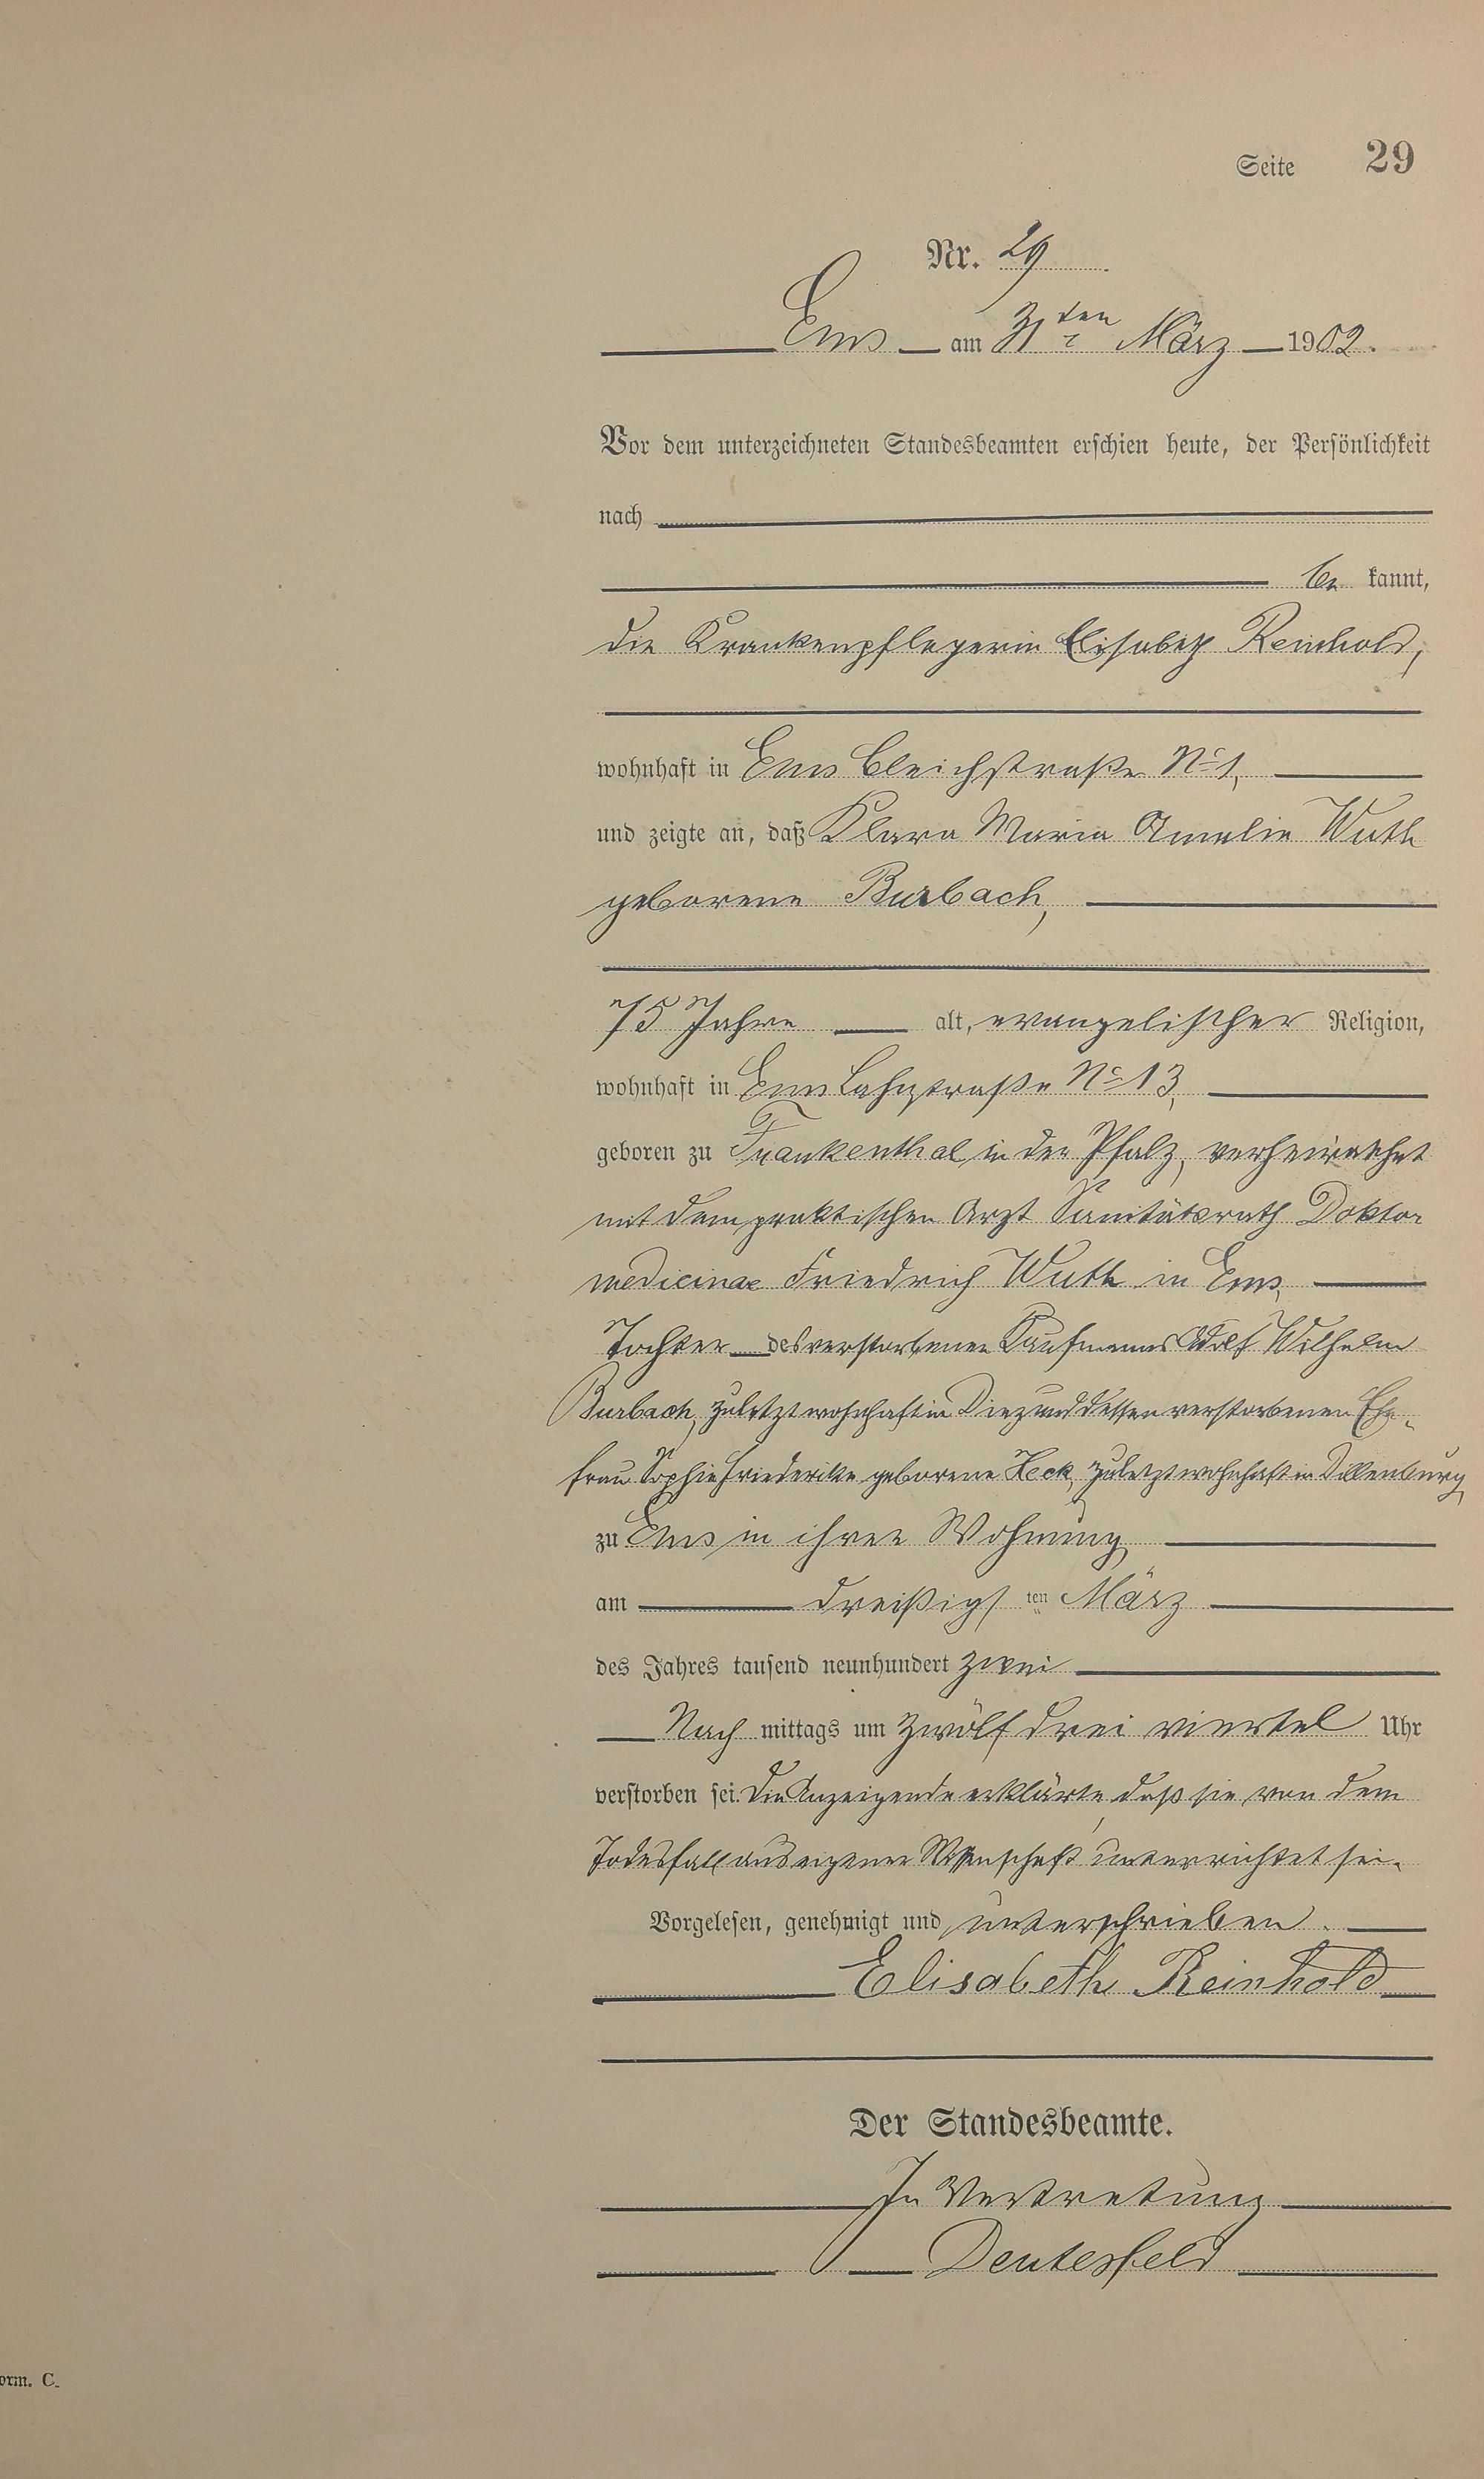 Seite 29
Nr. 29
Ems am 31ten März 1902.
Vor dem unterzeichneten Standesbeamten erschien heute, der Persönlichkeit
nach
be kannt,
die Krankenpflegerin Elisabeth Reinhold,
wohnhaft in Ems Bleichstraße No 1,
und zeigte an, daß Klara Maria Amalie Wuth
geborene Burbach,
75 Jahre alt, evangelischer Religion,
wohnhaft in Ems Lahnstraße No 13,
geboren zu Frankenthal in der Pfalz, verheirathet
mit dem praktischen Arzt Sanitätsrath Doktor
medicinae Friedrich Wuth in Ems,
Tochter des verstorbenen Kaufmanns Adolf Wilhelm
Burbach, zuletzt wohnhaft in Diez und dessen verstorbenen Ehe-
frau Sophie Friederike geborene Heck, zuletzt wohnhaft in Dillenburg,
zu Ems in ihrer Wohnung
am dreißigsten März
des Jahres tausend neunhundert zwei
Nach mittags um zwölf drei viertel Uhr
verstorben sei. Die Anzeigende erklärte, daß sie von dem
Todesfall aus eigener Wissenschaft unterrichtet sei.
Vorgelesen, genehmigt und unterschrieben.
Elisabeth Reinhold
Der Standesbeamte.
In Vertretung
Deutesfeld
orm. C.